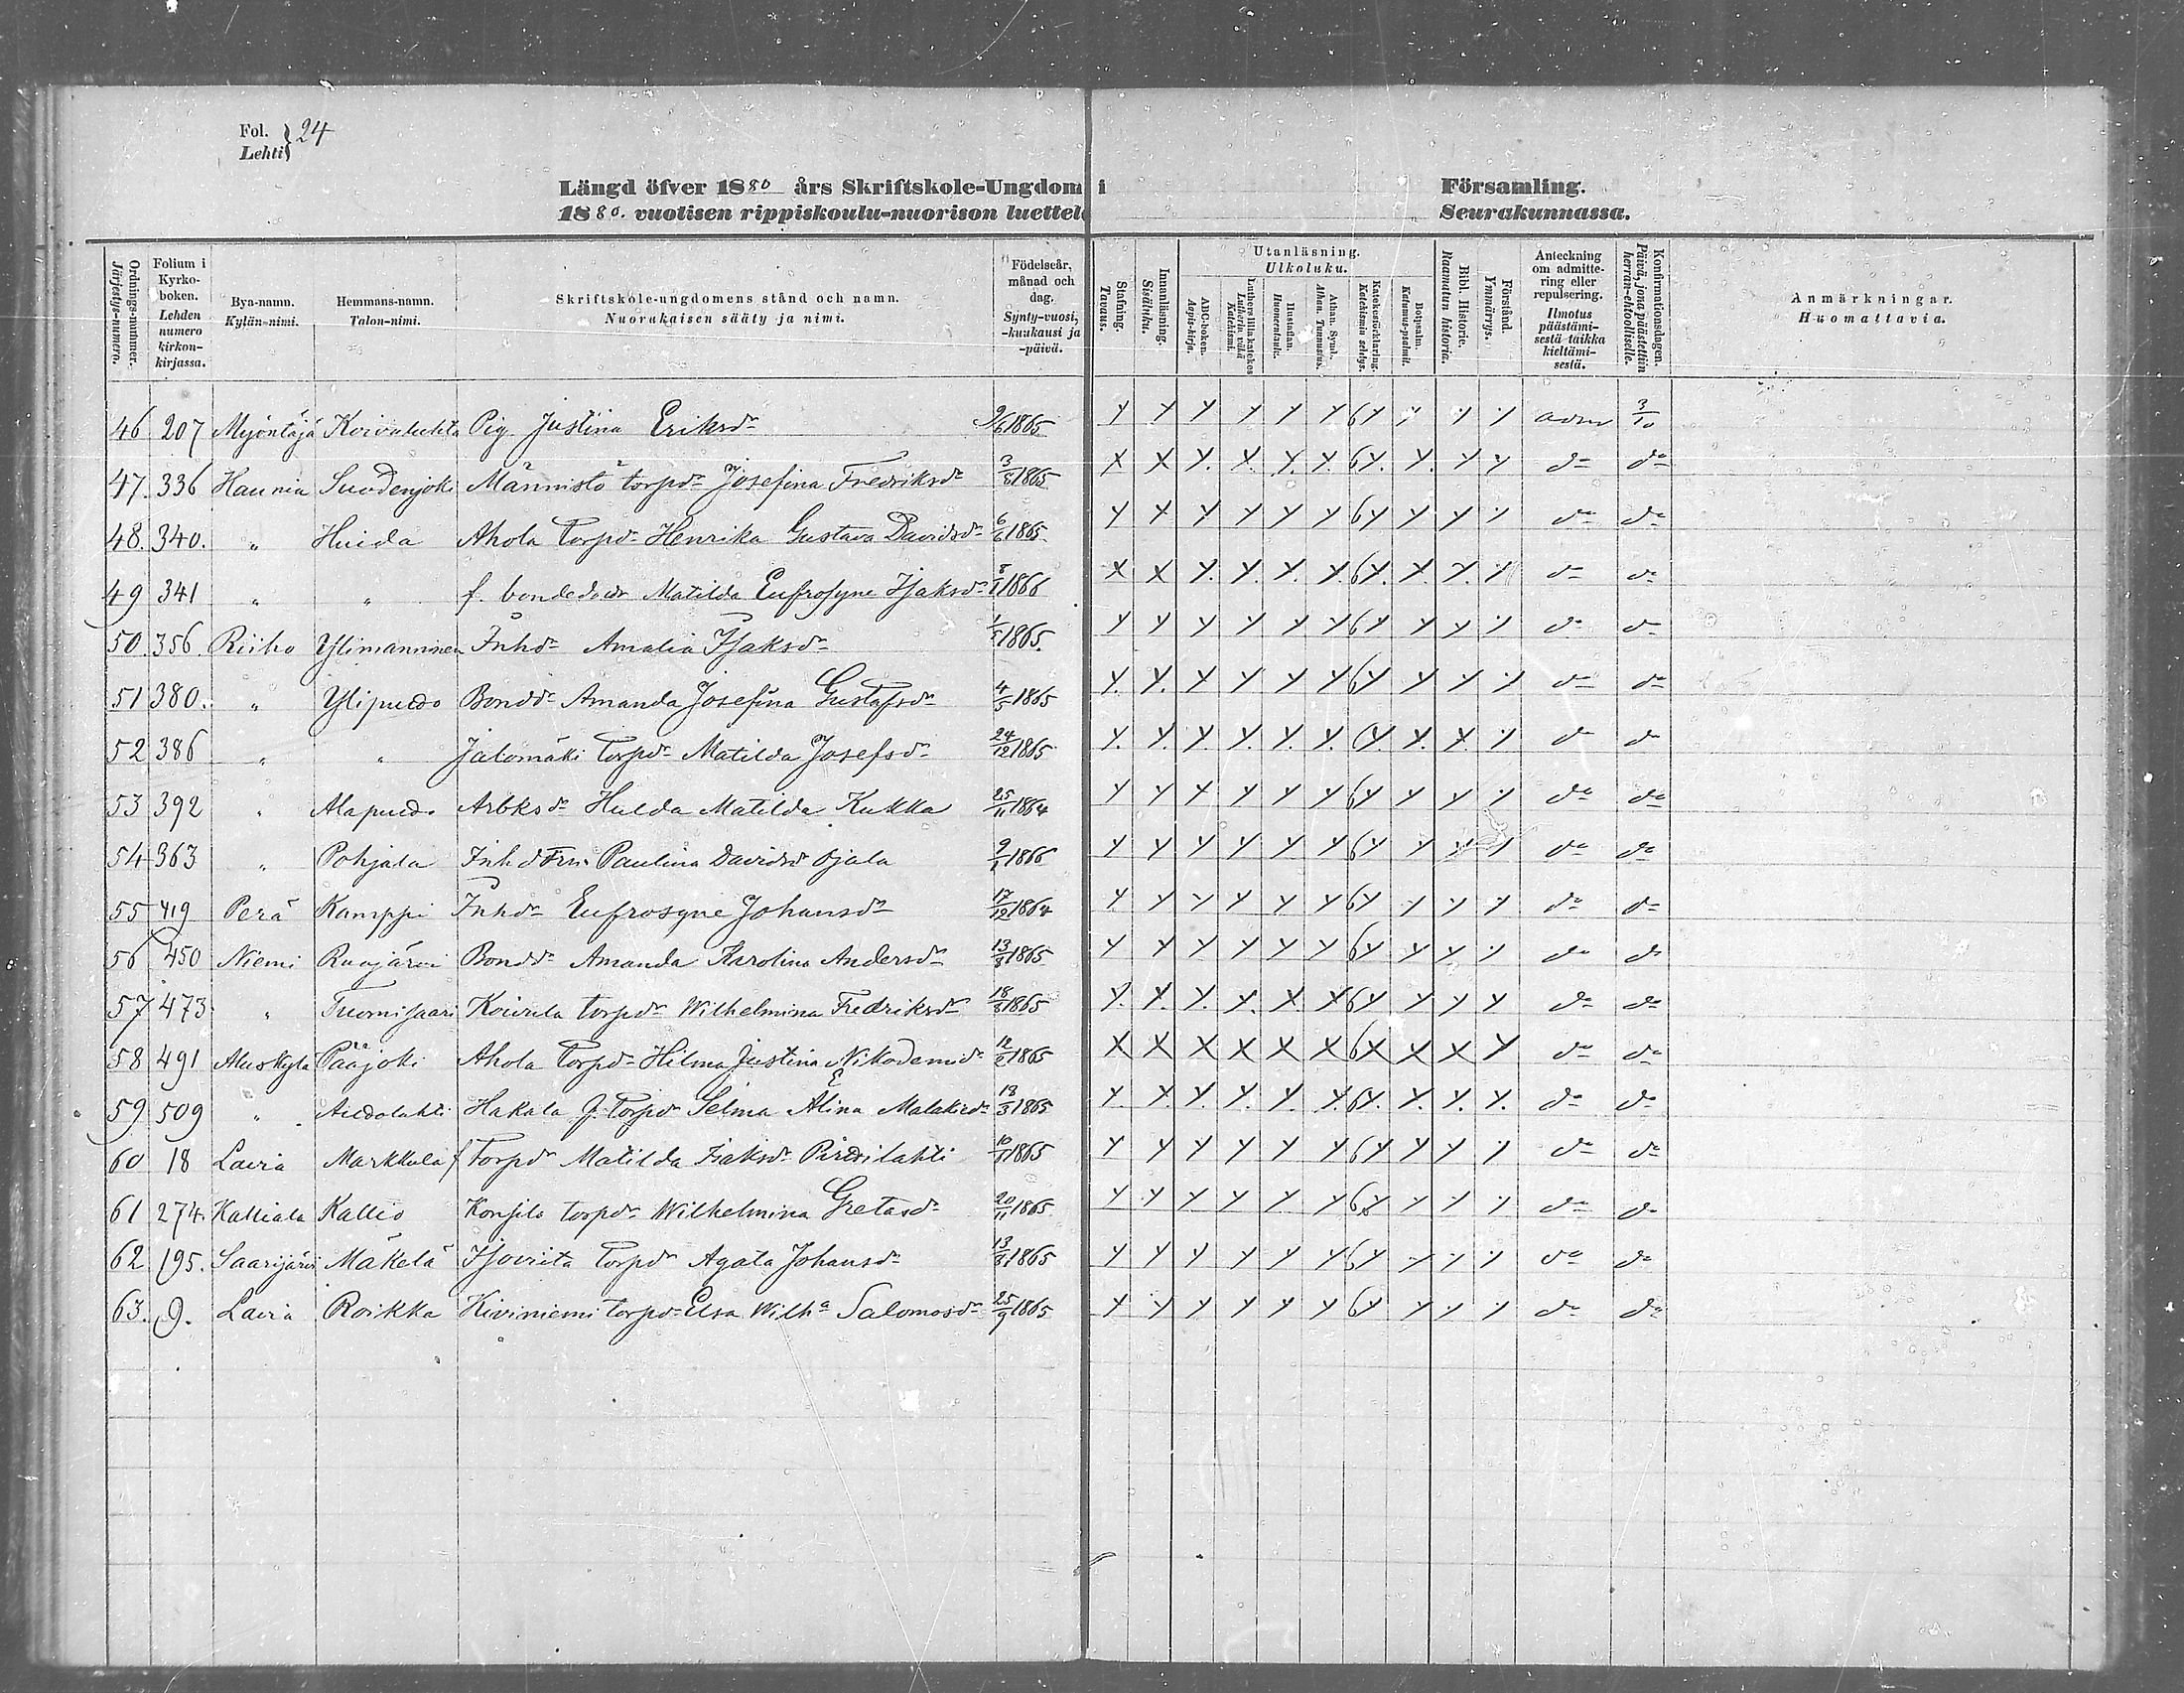 Fol. Lehti } 24
Längd öfver 1880 års Skriftskole-Ungdom i Församling.
1880. vuotisen rippiskoulu-nuorison luettelo Seurakunnassa.
Ordnings-nummer. Järjestys-numero.
Folium i Kyrko-boken. Lehden numero kirkon-kirjassa.
Bya-namn. Kylän-nimi.
Hemmans-namn. Talon-nimi.
Skriftskole-ungdomens stånd och namn. Nuorukaisen sääty ja nimi.
Födelseår, månad och dag. Synty-vuosi, -kuukausi ja -päivä.
Stafning. Tavaus.
Innanläsning. Sisäluku.
Utanläsning. Ulkoluku.
ABC-boken. Aapis-kirja.
Luthers lilla katekes. Lutherin vähä Katekismi.
Hustaflan. Huoneentaulu.
Athan. Symb. Athan. Tunnustus.
Katekesförklaring. Katekismin selitys.
Botpsalm. Katumus-psalmit.
Bibl. Historie. Raamatun historia.
Förstånd. Ymmärrys.
Anteckning om admitte-ring eller repulsering. Ilmotus päästämi-sestä taikka kieltämi-sestä.
Konfirmationsdagen. Päivä, jona päästettiin herran-ehtoolliselle.
Anmärkningar. Huomattavia.
46 207 Myöntäjä Koivuluhta Pig. Justina Eriksdr 9/6 1865 adm 3/10
47. 336 Haunia Suodenjoki Männistö torpdr Josefina Fredriksdr 3/8 1865 do do
48. 340. " Huida Ahola Torpdr Henrika Gustava Davidsdr 6/6 1865. do do
49 341 " " f. bondedotr Matilda Eufrosyne Isaksdr 8/1 1866 do do
50. 356. Riiho Ylimanninen Inhdr Amalia Isaksdr 1/5 1865. do do
51 380. " Ylipuido Bonddr Amanda Josefina Gustafsdr 4/5 1865 do do
52 386 " " Jalomäki Torpdr Matilda Josefsdr 24/12 1865 do do
53 392 " Alapuido Arbksdr Hulda Matilda Kukka 25/11 1864 do do
54 363 " Pohjala Inhd Paulina Davidsdr Ojala 9/1 1866 do do
55 419 Perä Kamppi Inhdr Eufrosyne Johansdr 17/12 1864 do do
56 450 Niemi Ruojärvi Bonddr Amanda Karolina Andersdr 13/8 1865 do do
57 473. " Tuomisaari Koivula torpdr Wilhelmina Fredriksdr 18/8 1865 do do
58 491 Aluskylä Pääjoki Ahola Torpdr Hilma Justina Nikodemidr 12/2 1865 do do
59 509 " Auvolahti Hakala f. Torpdr Selma Elina Malakidr 13/3 1865 do do
60 18 Lavia Markkula f Torpdr Matilda Isaksdr Pirttilahti 10/8 1865 do do
61 274. Kalliala Kallio torpdr Wilhelmina Gretasdr 20/11 1865 do do
62 195. Saarijärvi Mäkelä Isovita Torpdr Agata Johansdr 13/8 1865 do do
63. 9. Lavia Roikka Kiviniemi torpdr Elsa Wilha Salomosdr 25/9 1865 do do